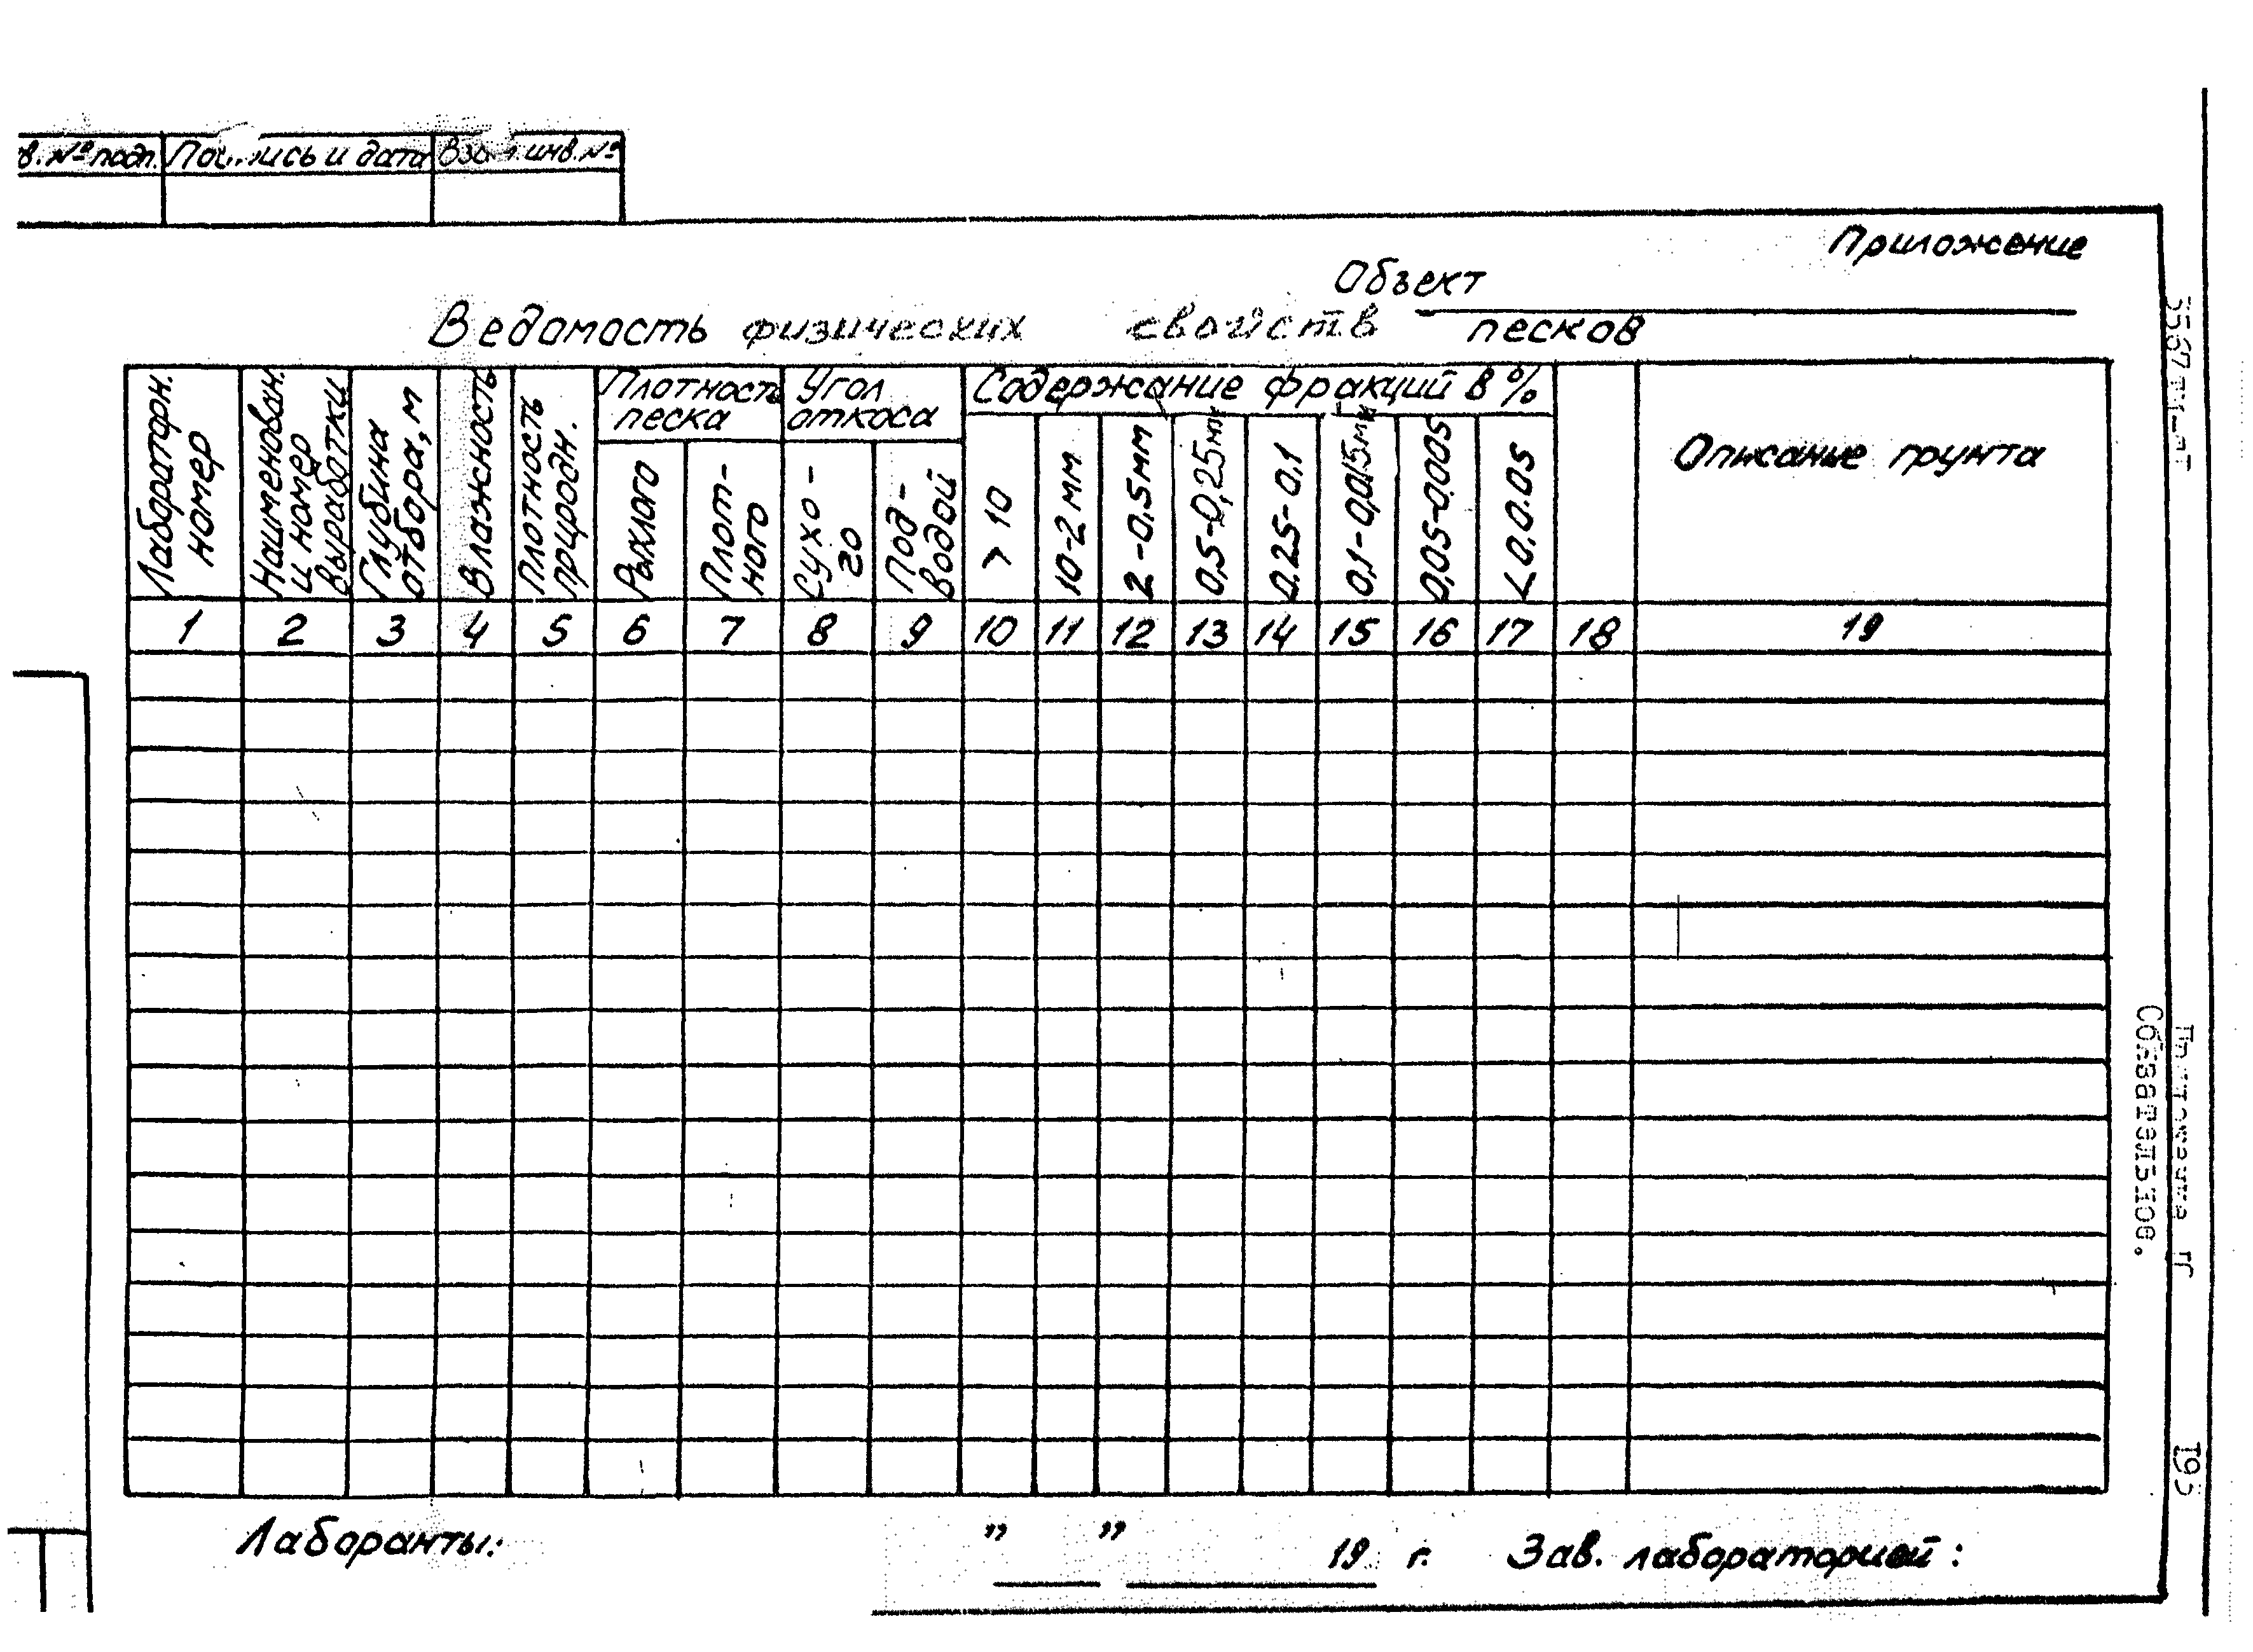 в. № подп. Подпись и дата Взам инв. №
Приложение
Объект
Ведомость физических свойств песков
Лабораторн.
номер
Наименован.
и номер
выработки
Глубина
отбора, м
Влажность
Плотность
природн.
Плотность
песка
Рыхлого
Плот-
ного
Угол
откоса
Сухо-
го
Под-
водой
Содержание фракций в %
> 10
10-2 мм
2-0,5мм
0,5-0,25мм
0.25-0,1
0,1-0,015мм
0,05-0.005
<0.0.05
Описание грунта
1 2 3 4 5 6 7 8 9 10 11 12 13 14 15 16 17 18 19
Лаборанты:
" " 19 г. Зав. лабораторией:
Обязательное.